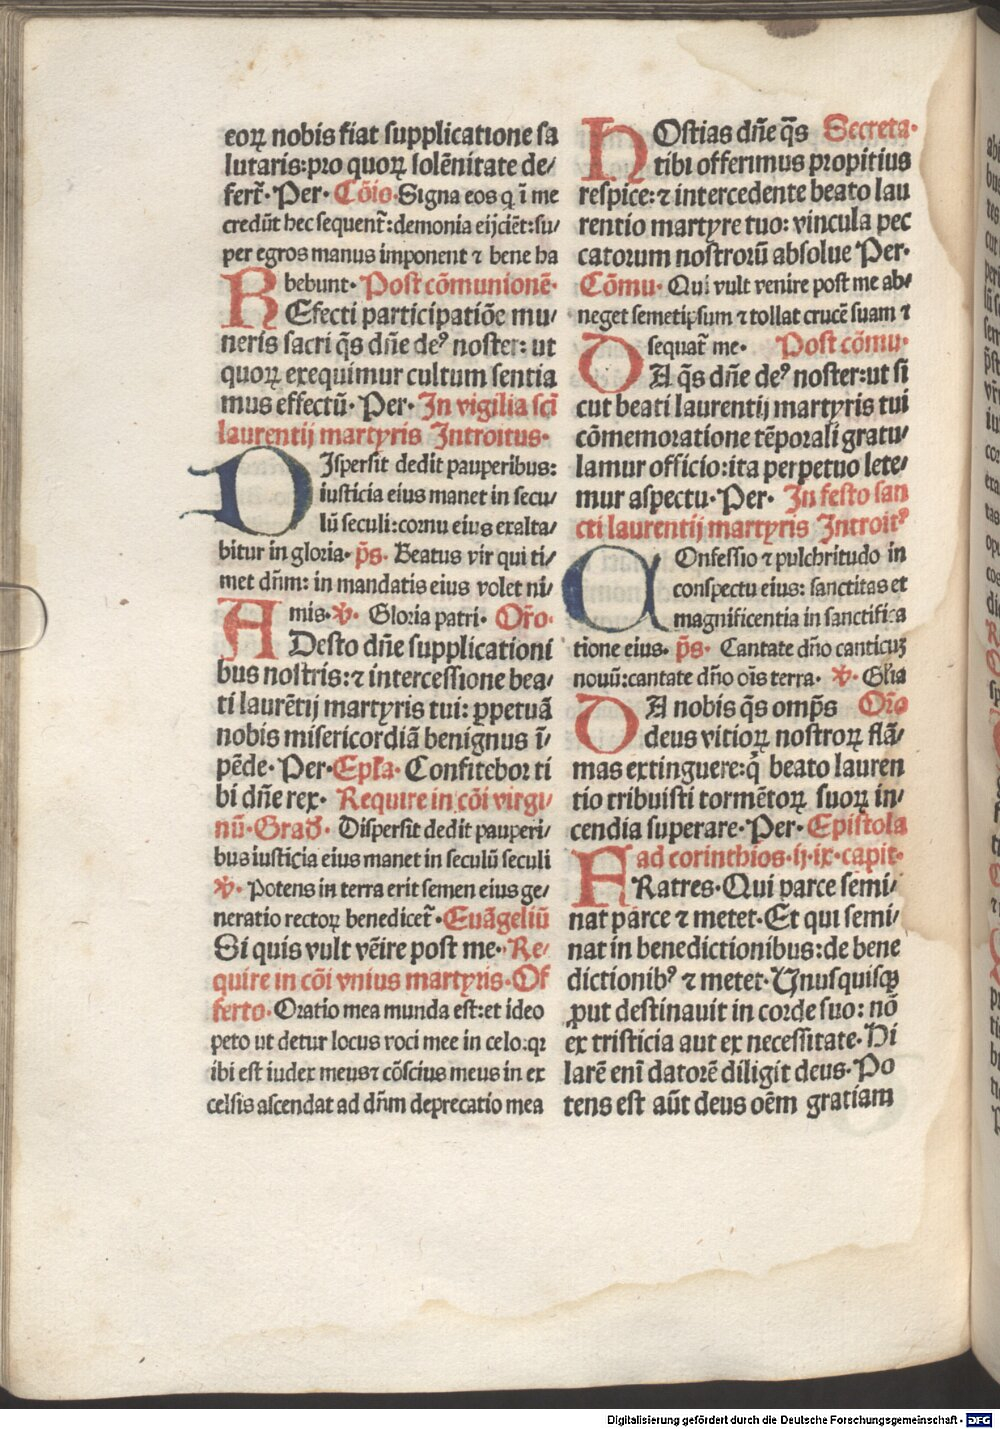 eoꝝ nobis fiat supplicatione sa
lutaris:pro quoꝝ solēnitate de/
fert̄. Per. Cōio. Signa eos q̄ ī me
credūt hec sequent̄: demonia eijciēt:su/
per egros manus imponent ⁊ bene ha
bebunt. Post cōmunionē.
REfecti participatiōe mu/
neris sacri q̄s dn̄e deꝰ noster: ut
quoꝝ exequimur cultum sentia
mus effectū. Per. In vigilia scī
laurentij martyris Introitus.
DIspersit dedit pauperibus:
iusticia eius manet in secu/
lū seculi:cornu eius exalta/
bitur in gloria. ps̄. Beatus vir qui ti/
met dn̄m: in mandatis eius volet ni/
mis. ℣. Gloria patri. Or̄o.
ADesto dn̄e supplicationi
bus nostris:⁊ intercessione bea/
ti laurētij martyris tui: ꝑpetuā
nobis misericordiā benignus ī/
pēde. Per. Epl̄a. Confitebor ti
bi dn̄e rex. Require in cōi virgi/
nū. Grad̄. Dispersit dedit pauperi/
bus iusticia eius manet in seculū seculi
℣. Potens in terra erit semen eius ge/
neratio rectoꝝ benedicet̄. Euāgeliū
Si quis vult vēire post me. Re/
quire in cōi vnius martyris. Of
ferto. Oratio mea munda est:et ideo
peto ut detur locus voci mee in celo:qꝛ
ibi est iudex meus⁊ cōscius meus in ex
celsis ascendat ad dn̄m deprecatio mea
HOstias dn̄e q̄s Secreta.
tibi offerimus propitius
respice:⁊ intercedente beato lau
rentio martyre tuo: vincula pec
catorum nostrorū absolue Per.
Cōmu. Qui vult venire post me ab/
neget semetipsum ⁊ tollat crucē suam ⁊
sequat̄ me. Post cōmu.
DA q̄s dn̄e deꝰ noster:ut si
cut beati laurentij martyris tui
cōmemoratione tēporali gratu/
lamur officio:ita perpetuo lete/
mur aspectu. Per. In festo san
cti laurentij martyris Introitꝰ
COnfessio ⁊ pulchritudo in
conspectu eius: sanctitas et
magnificentia in sanctifica
tione eius. ps̄. Cantate dn̄o canticuꝫ
nouū:cantate dn̄o oīs terra. ℣. Gl̄ia
DA nobis q̄s omp̄s Or̄o
deus vitioꝝ nostroꝝ flā/
mas extinguere:q̇ beato lauren
tio tribuisti tormētoꝝ suoꝝ in/
cendia superare. Per. Epistola
ad corinthios.ij.ix.capit.
FRatres. Qui parce semi/
nat parce ⁊ metet. Et qui semi/
nat in benedictionibus:de bene
dictionibꝰ ⁊ metet. Unusquisqꝫ
ꝓut destinauit in corde suo: nō
ex tristicia aut ex necessitate. Hi
larē enī datorē diligit deus. Po
tens est aūt deus oēm gratiam
Digitalisierung gefördert durch die Deutsche Forschungsgemeinschaft - DFG